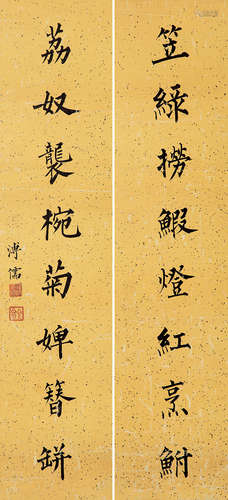 笠綠撈鰕燈紅烹鮒
荔奴襲椀菊婢簪缾
溥儒